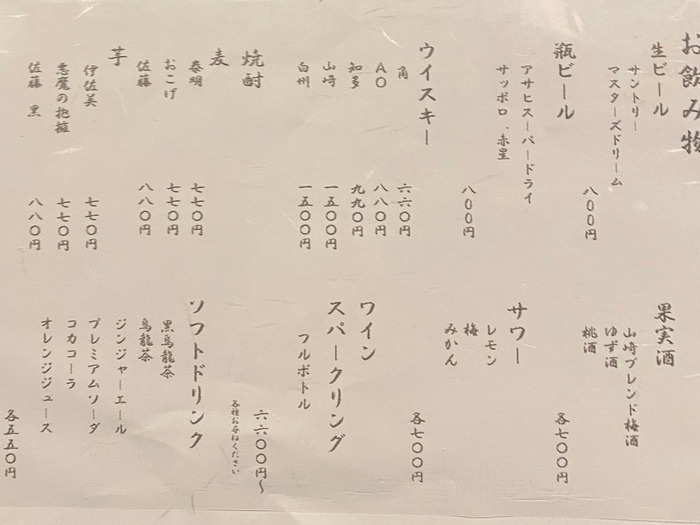 お飲み物
生ビール
サントリー
マスターズドリーム
八〇〇円
瓶ビール
アサヒスーパードライ
サッポロ、赤星
八〇〇円
ウイスキー
角 六六〇円
AO 八八〇円
知多 九九〇円
山崎 一五〇〇円
白州 一五〇〇円
焼酎
麦
泰明 七七〇円
おこげ 七七〇円
佐藤 八八〇円
芋
伊佐美 七七〇円
悪魔の抱擁 七七〇円
佐藤 黒 八八〇円
果実酒
山崎ブレンド梅酒
ゆず酒
桃酒
各七〇〇円
サワー
レモン
梅
みかん
各七〇〇円
ワイン
スパークリング
フルボトル
六六〇〇円〜
各種お尋ねください
ソフトドリンク
黒烏龍茶
烏龍茶
ジンジャーエール
プレミアムソーダ
コカコーラ
オレンジジュース
各五五〇円